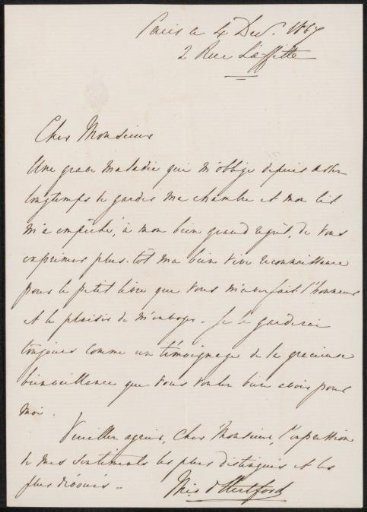 Paris le 4 Dec. 1867
2 Rue Laffitte
Cher Monsieur
Une grave maladie qui m'oblige depuis
longtemps de garder ma chambre et mon lit
m'a empêché, à mon bien grand regret, de vous
exprimer plus-tôt ma bien vive reconnaissance
pour le petit livre que vous m'avez fait l'honneur
et le plaisir de m'envoyer. Je le garderai
toujours comme un témoignage de la gracieuse
bienveillance que vous voulez bien avoir pour
moi.
Veuillez agréer, Cher Monsieur, l'expression
de mes sentiments les plus distingués et les
plus dévoués —
d'Hertford